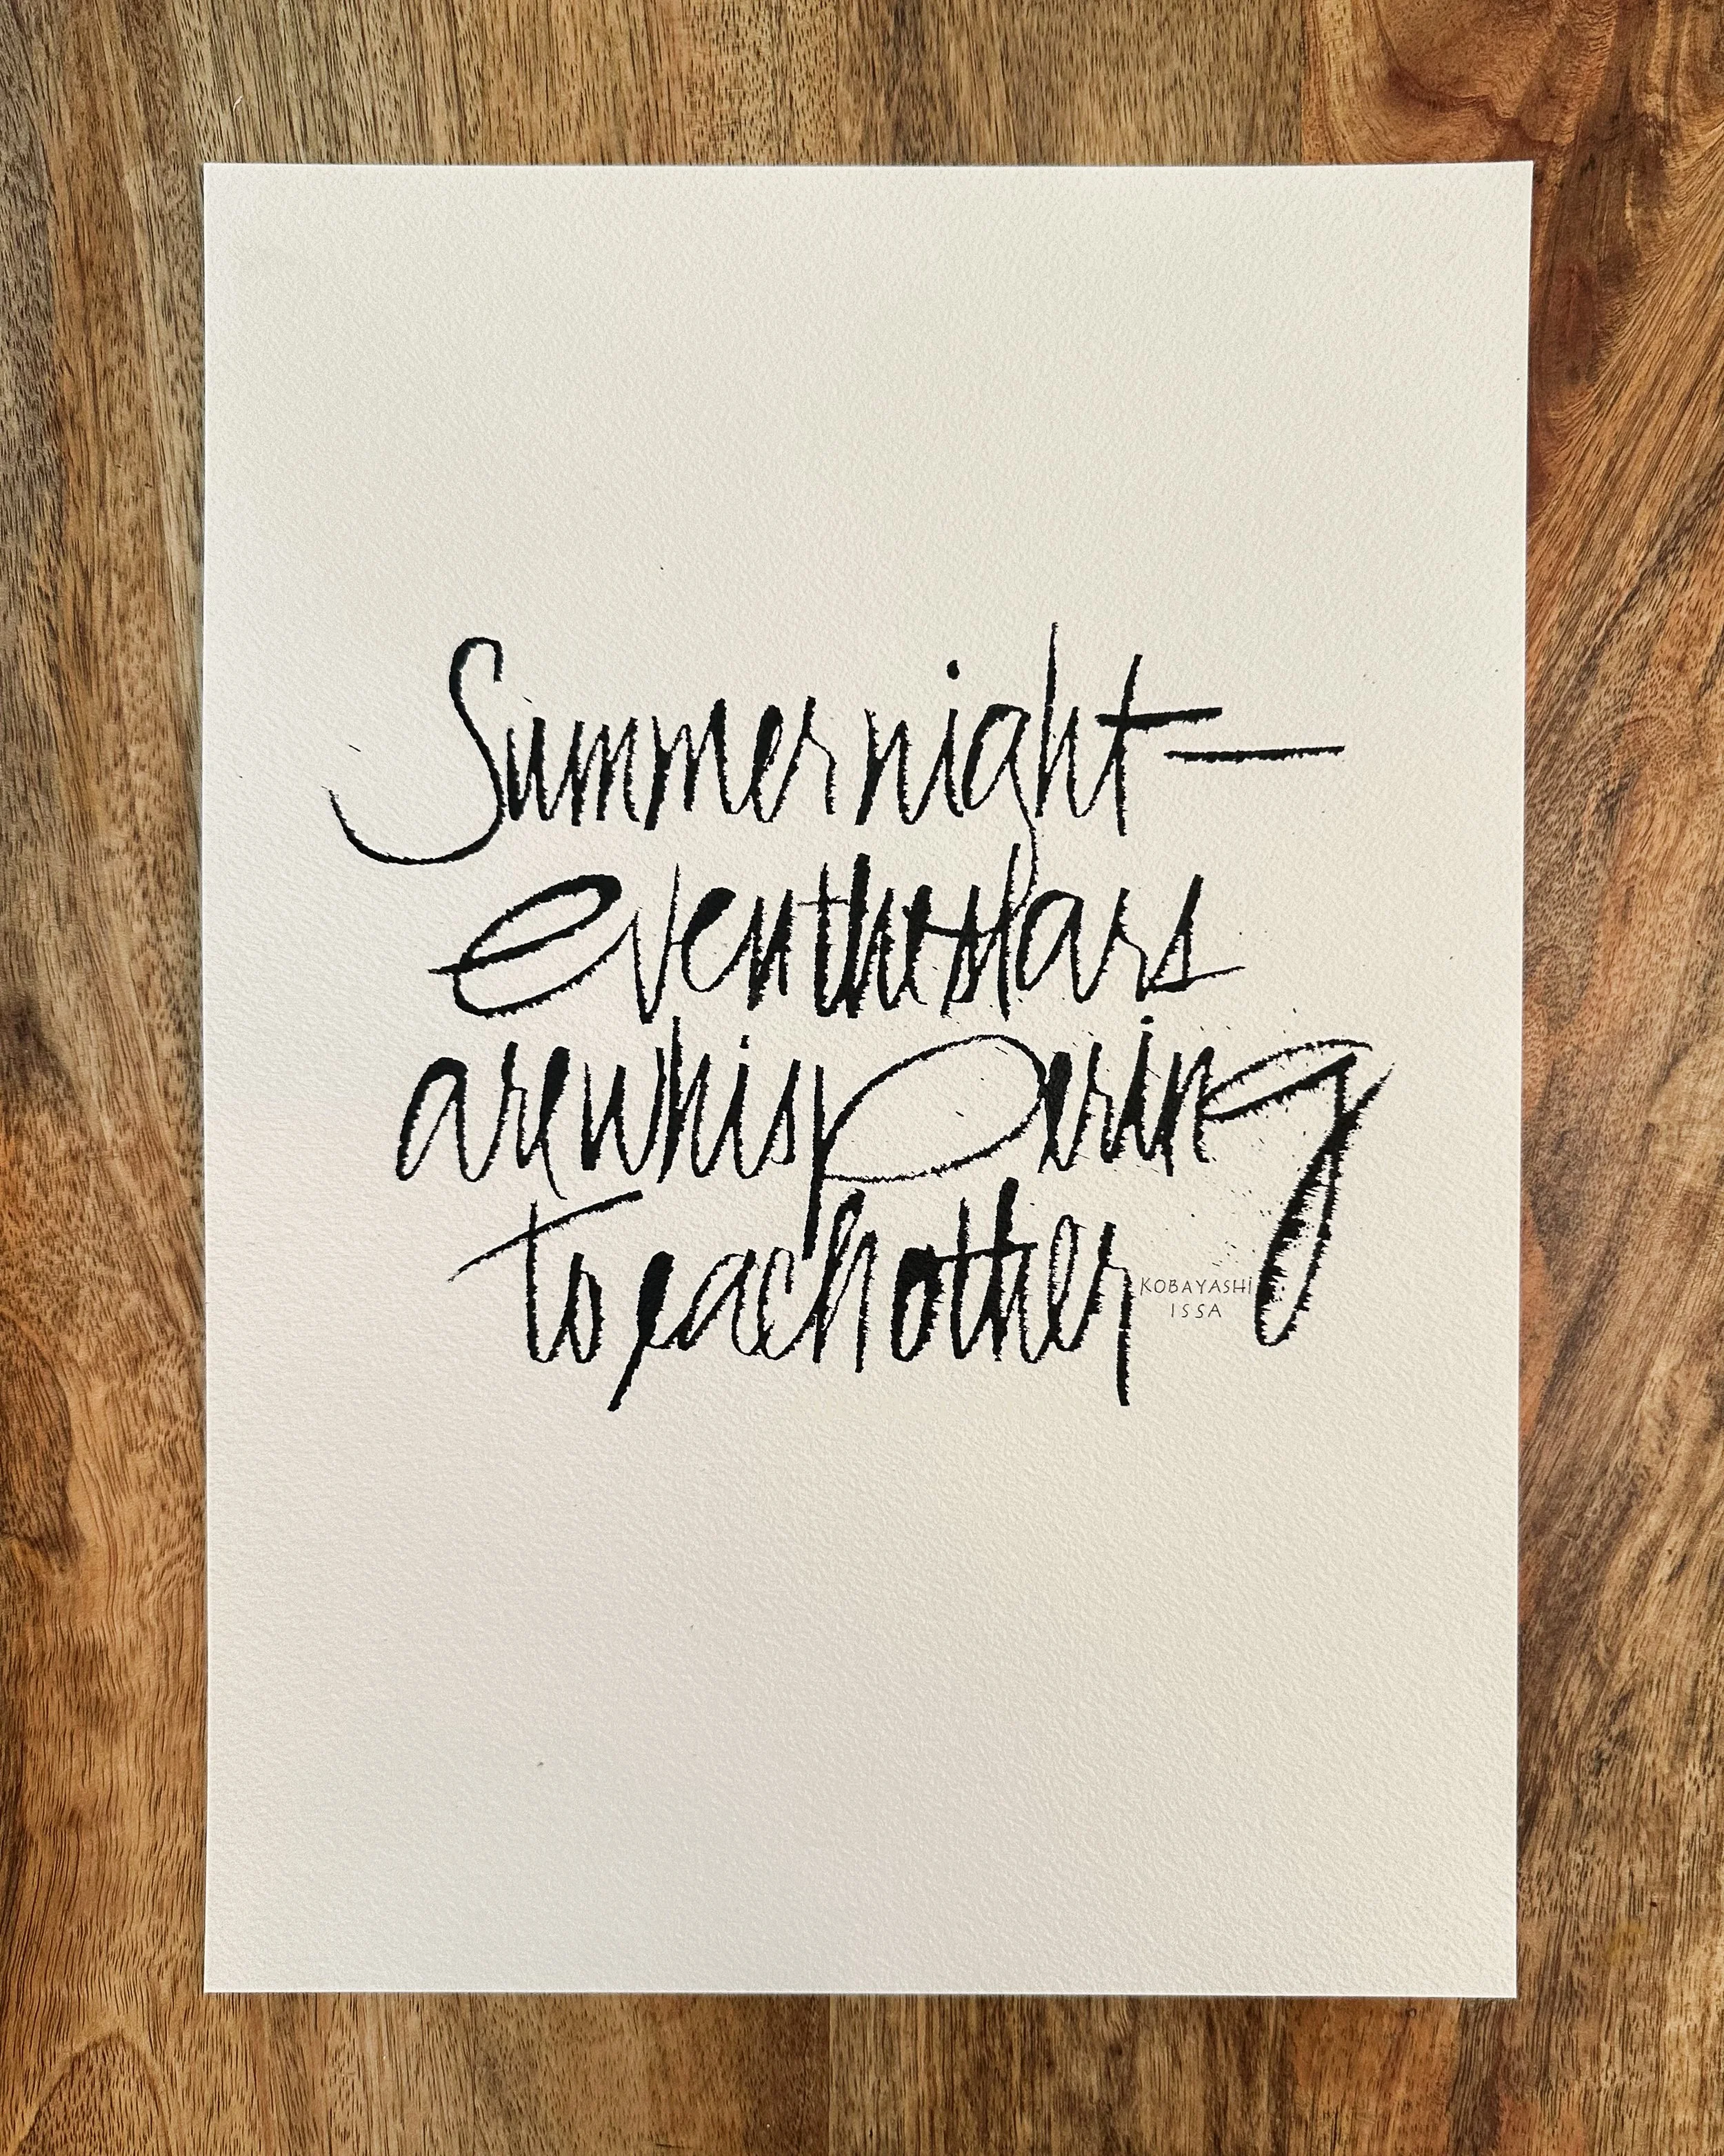 Summer night—
even the stars
are whispering
to each other
KOBAYASHI
ISSA